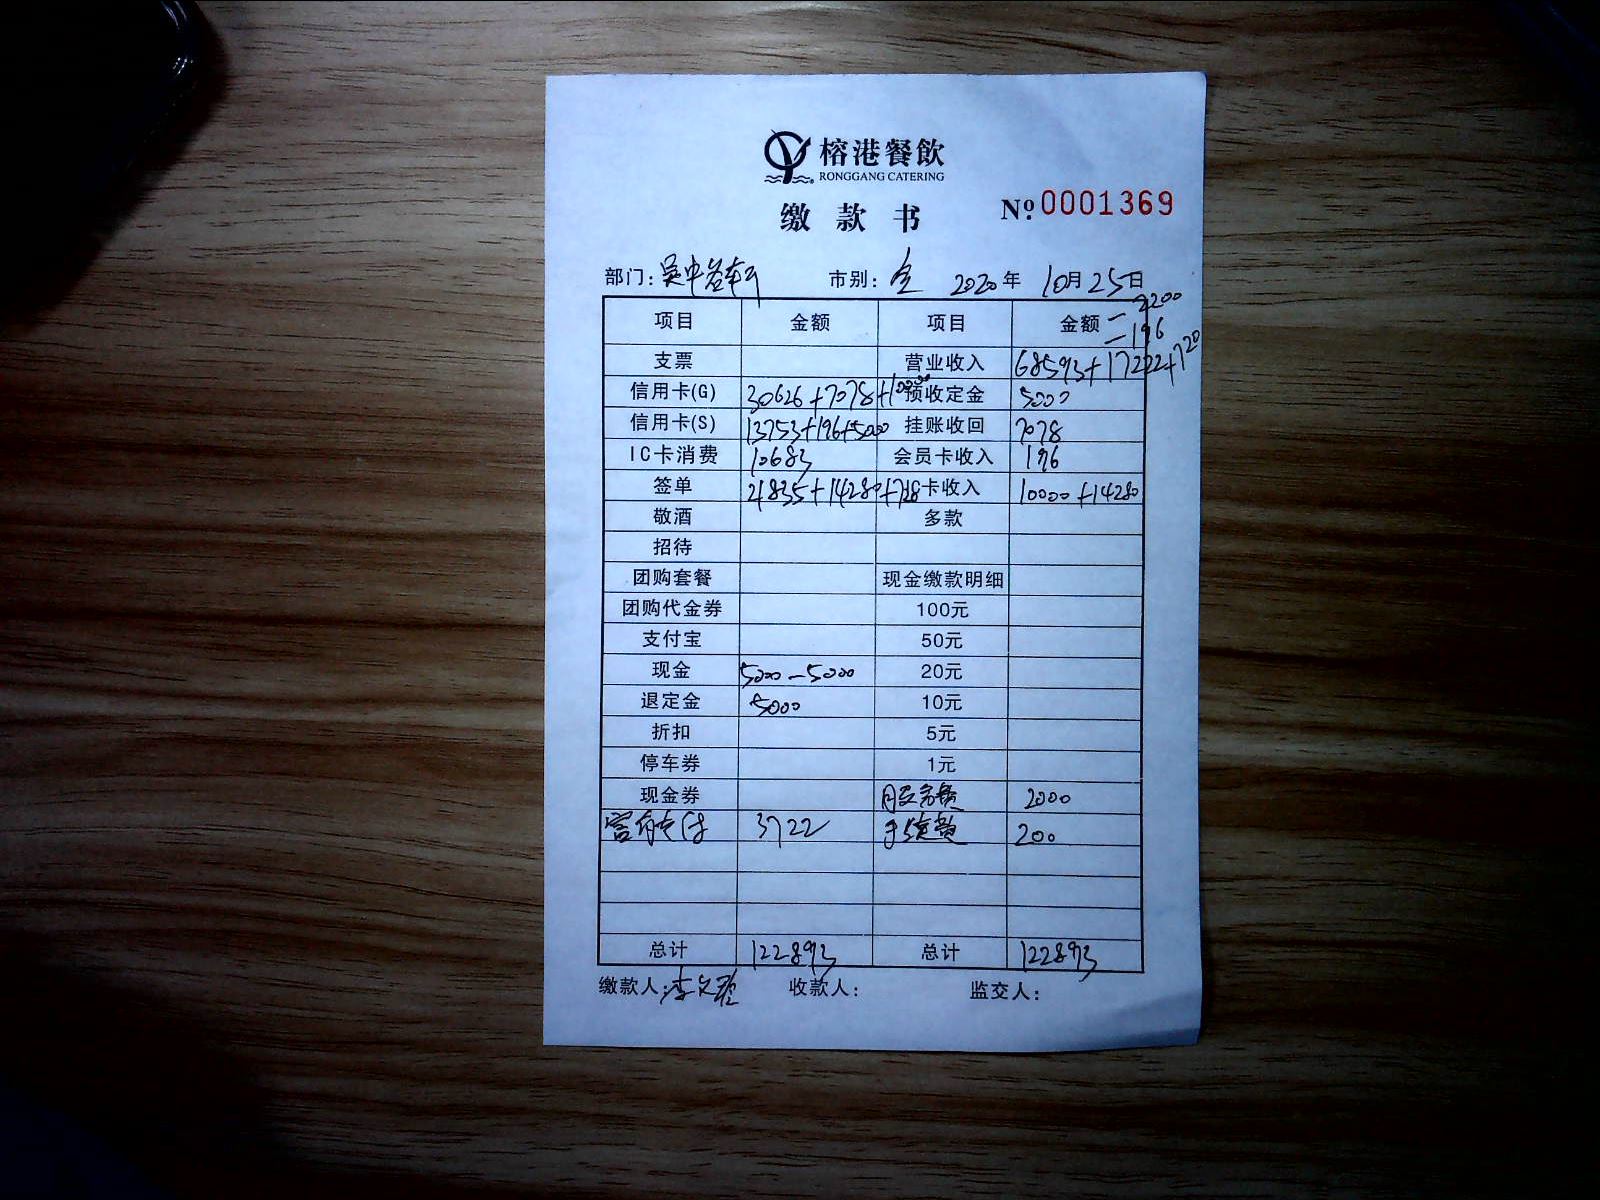 榕港餐飲
RONGGANG CATERING
缴款书 №:0001369
部门:吴中 市别:全 2020年 10月25日
-2200
项目 金额 项目 金额 -196
支票 营业收入 68593+17222+720
信用卡(G) 30626+7078+10000 预收定金 5000
信用卡(S) 13753+196+5000 挂账收回 7078
IC卡消费 10683 会员卡收入 196
签单 21835+14280+720 卡收入 10000+14280
敬酒 多款
招待
团购套餐 现金缴款明细
团购代金券 100元
支付宝 50元
现金 5000-5000 20元
退定金 5000 10元
折扣 5元
停车券 1元
现金券 服务费 2000
3722 手续费 200
总计 122893 总计 122893
缴款人:李文 收款人: 监交人: